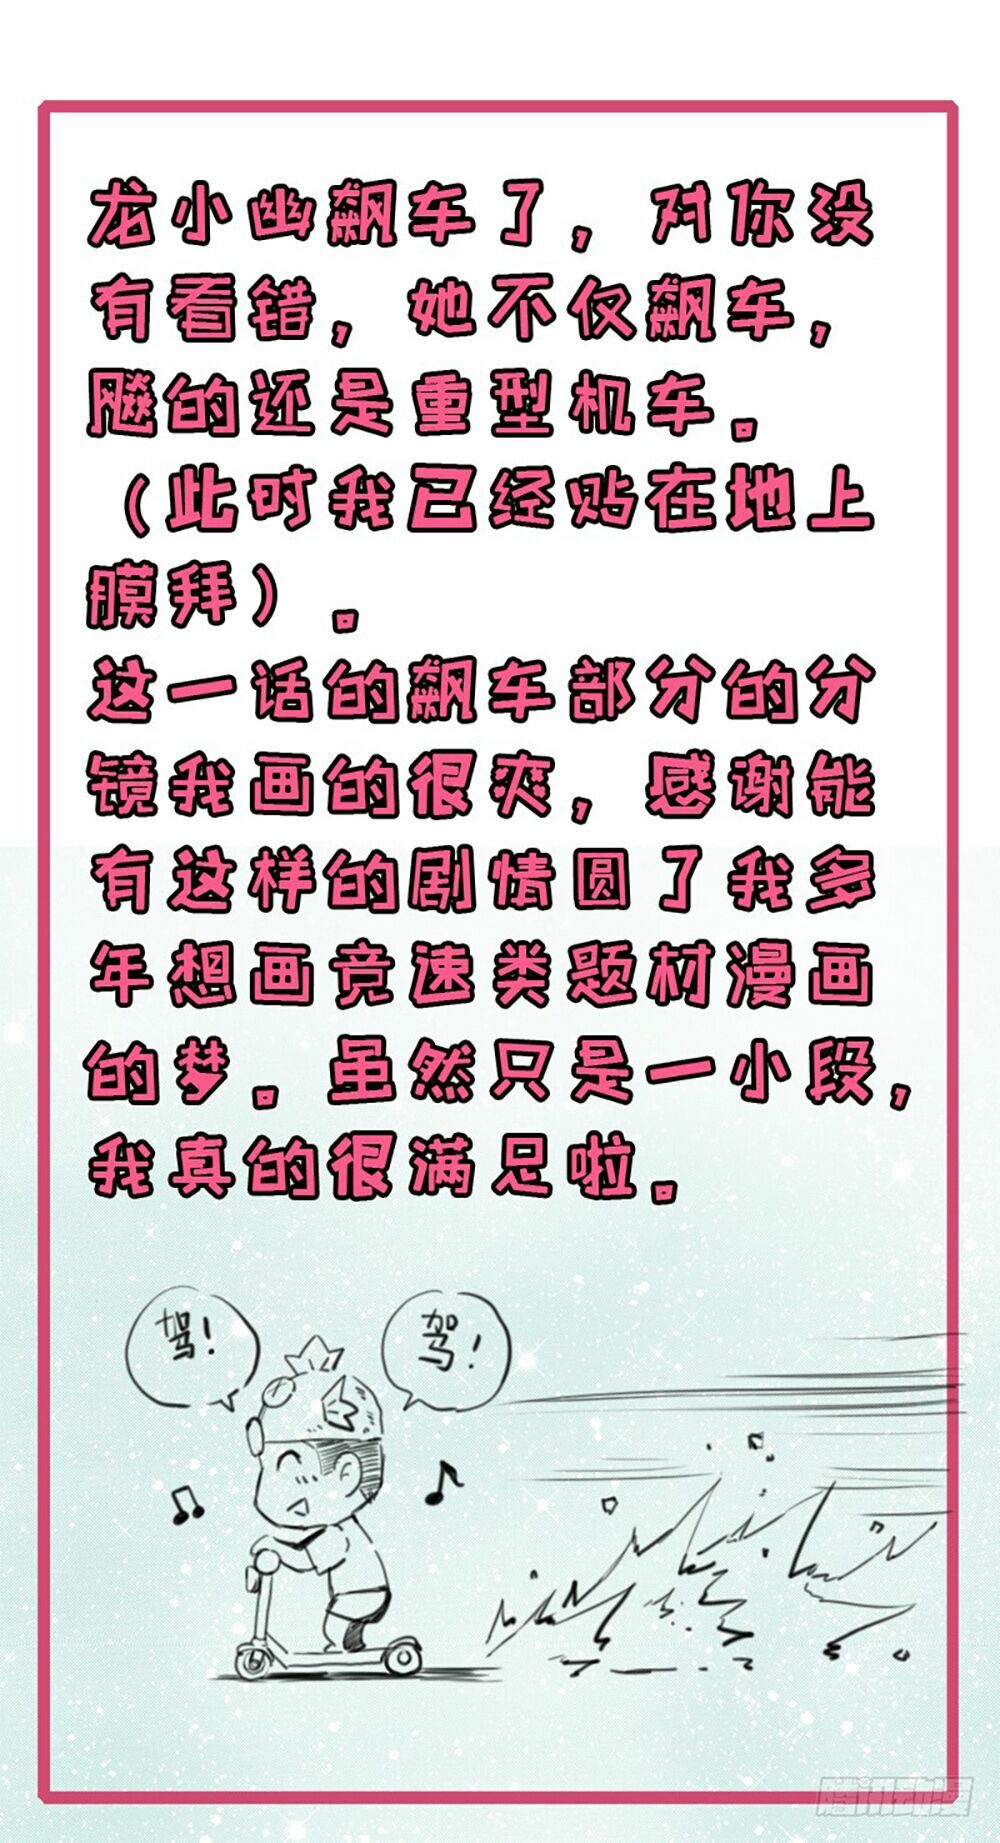 龙小幽飙车了，对你没
有看错，她不仅飙车，
飚的还是重型机车。
（此时我已经贴在地上
膜拜）。
这一话的飙车部分的分
镜我画的很爽，感谢能
有这样的剧情圆了我多
年想画竞速类题材漫画
的梦。虽然只是一小段，
我真的很满足啦。
驾！
驾！
腾讯动漫